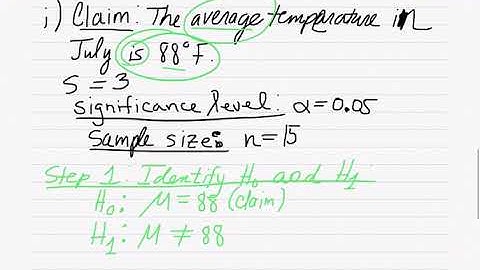 i) Claim: The average temperature in
July is 88°F.
S = 3
significance level: α = 0.05
Sample size: n = 15
Step 1: Identify H₀ and H₁:
H₀: μ = 88 (claim)
H₁: μ ≠ 88